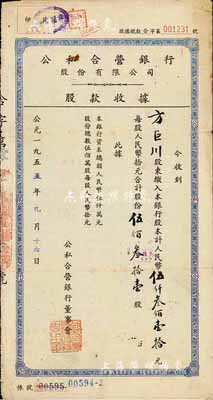 股據税款壹字第001231號
公私合營銀行
股份有限公司
股款收據
今收到
方巨川股東繳入本銀行股本計人民幣伍仟叁佰壹拾元
每股人民幣拾元合計股份伍佰叁拾壹股
此據
本銀行資本總額人民幣伍仟萬元
股份總數伍佰萬股每股人民幣拾元
公私合營銀行董事會
公元一九五五年九月十六日
帳號 00595 00594-2